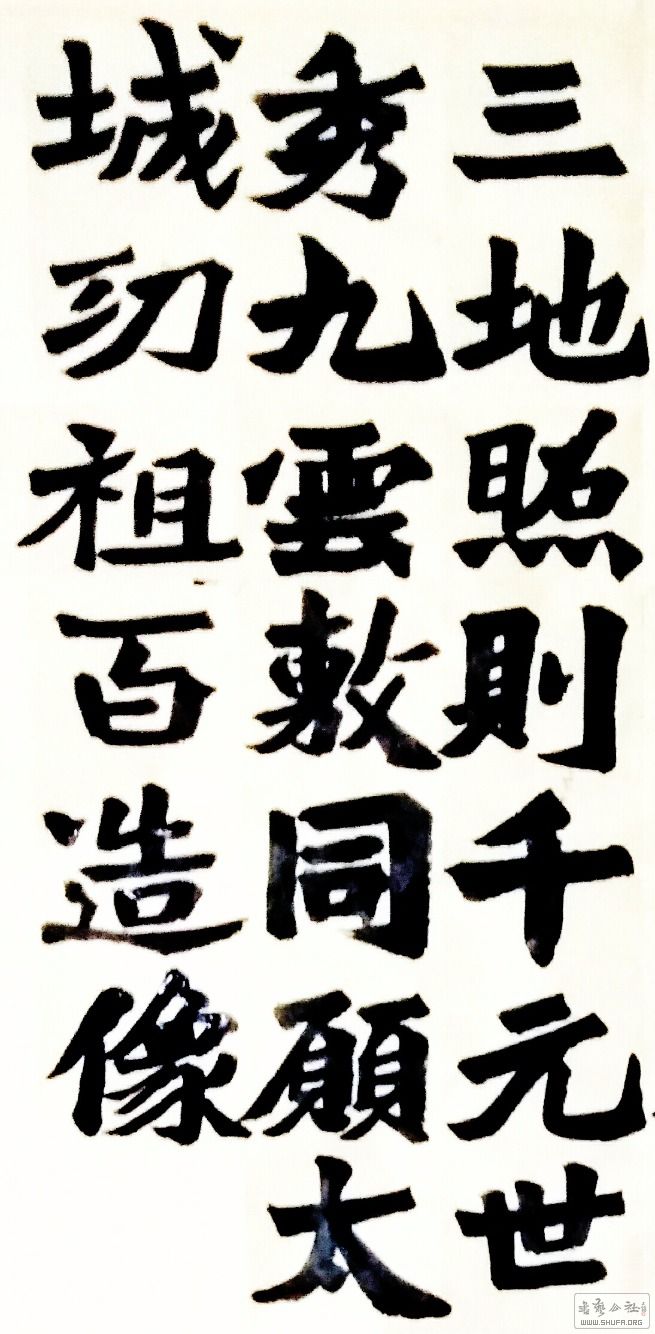 三地照則千元世
秀九雲敷同願太
城刃祖百造像
書藝公社
WWW.SHUFA.ORG